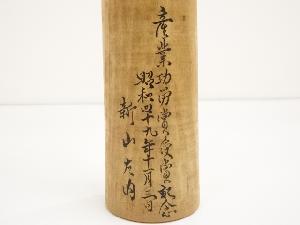 産業功労賞受賞記念
昭和四十九年十一月三日
新山左内